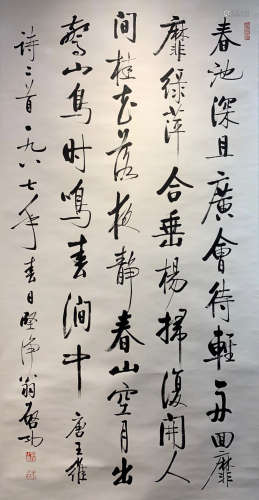 春池深且廣會待輕舟回靡
靡綠萍合垂楊掃復開人
間桂花落夜靜春山空月出
驚山鳥時鳴春澗中 唐王維
詩二首一九八七年春日堅淨翁啓功